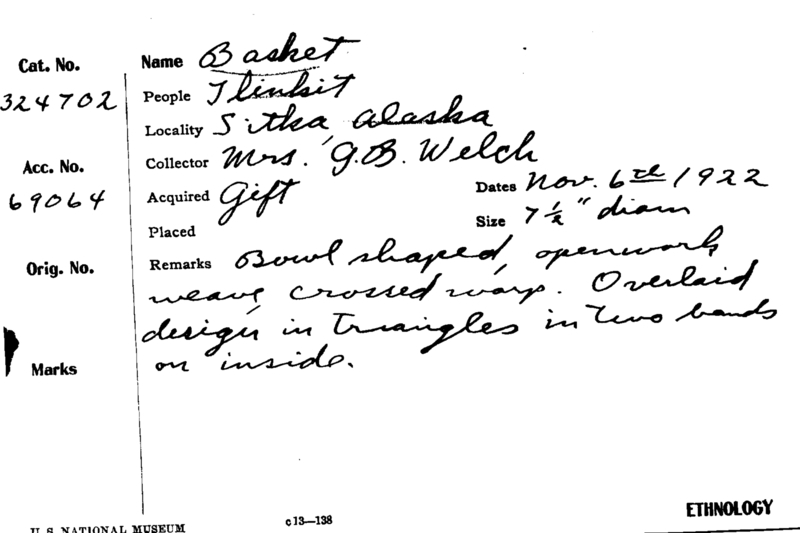 Cat. No.
324702
Acc. No.
69064
Orig. No.
Marks
Name Basket
People Tlinkit
Locality Sitka, Alaska
Collector Mrs. G.B. Welch
Acquired Gift
Dates Nov. 6th 1922
Placed
Size 7 1/2" diam
Remarks Bowl shaped, openwork
weave, crossed warp. Overlaid
design in triangles in two bands
on inside.
U. S. NATIONAL MUSEUM
c13—138
ETHNOLOGY